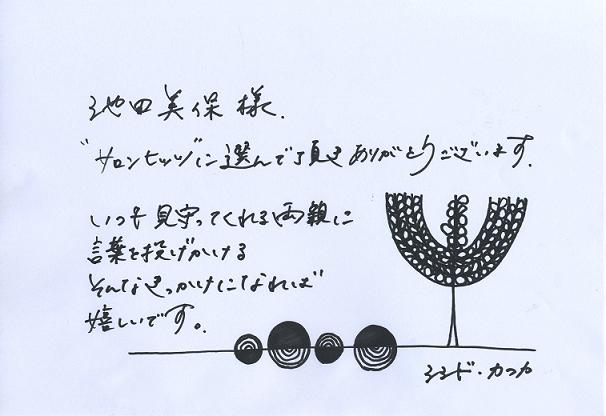 池田美保様.
"サロンヒッツ"に選んで頂きありがとうございます.
いつも見守ってくれる両親に
言葉を投げかける
そんなきっかけになれば
嬉しいです。
シシド・カフカ